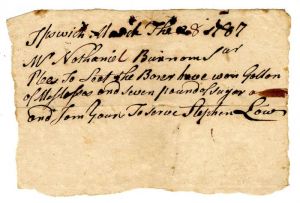 Ipswich March The 28 1787
Mr Nathaniel Burnom Sur
Ples To Let the Borer have won Gallon
of Mollosses and seven pound of Sugar
and I am Yours To Serve Stephen Low